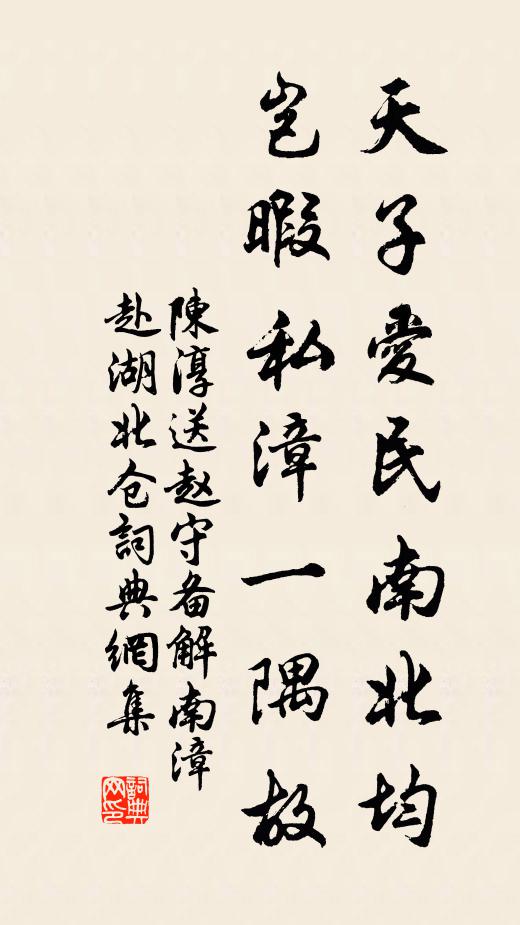 天子愛民南北均
豈暇私漳一隅故
陳淳送赵守备解南漳
赴湖北仓詞典網集
詞典网印